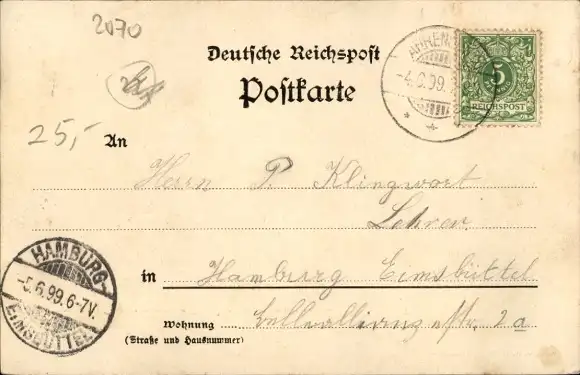 2070
Deutsche Reichspost
Postkarte
25,-
An
AHRENS
-4.6.99.
5
REICHSPOST
Herrn P. Klingwort
Lehrer
in Hamburg Eimsbüttel
Wohnung Bellealliancestr. 2a
(Straße und Hausnummer)
HAMBURG-
-5.6.99.6-7V.
EIMSBÜTTEL